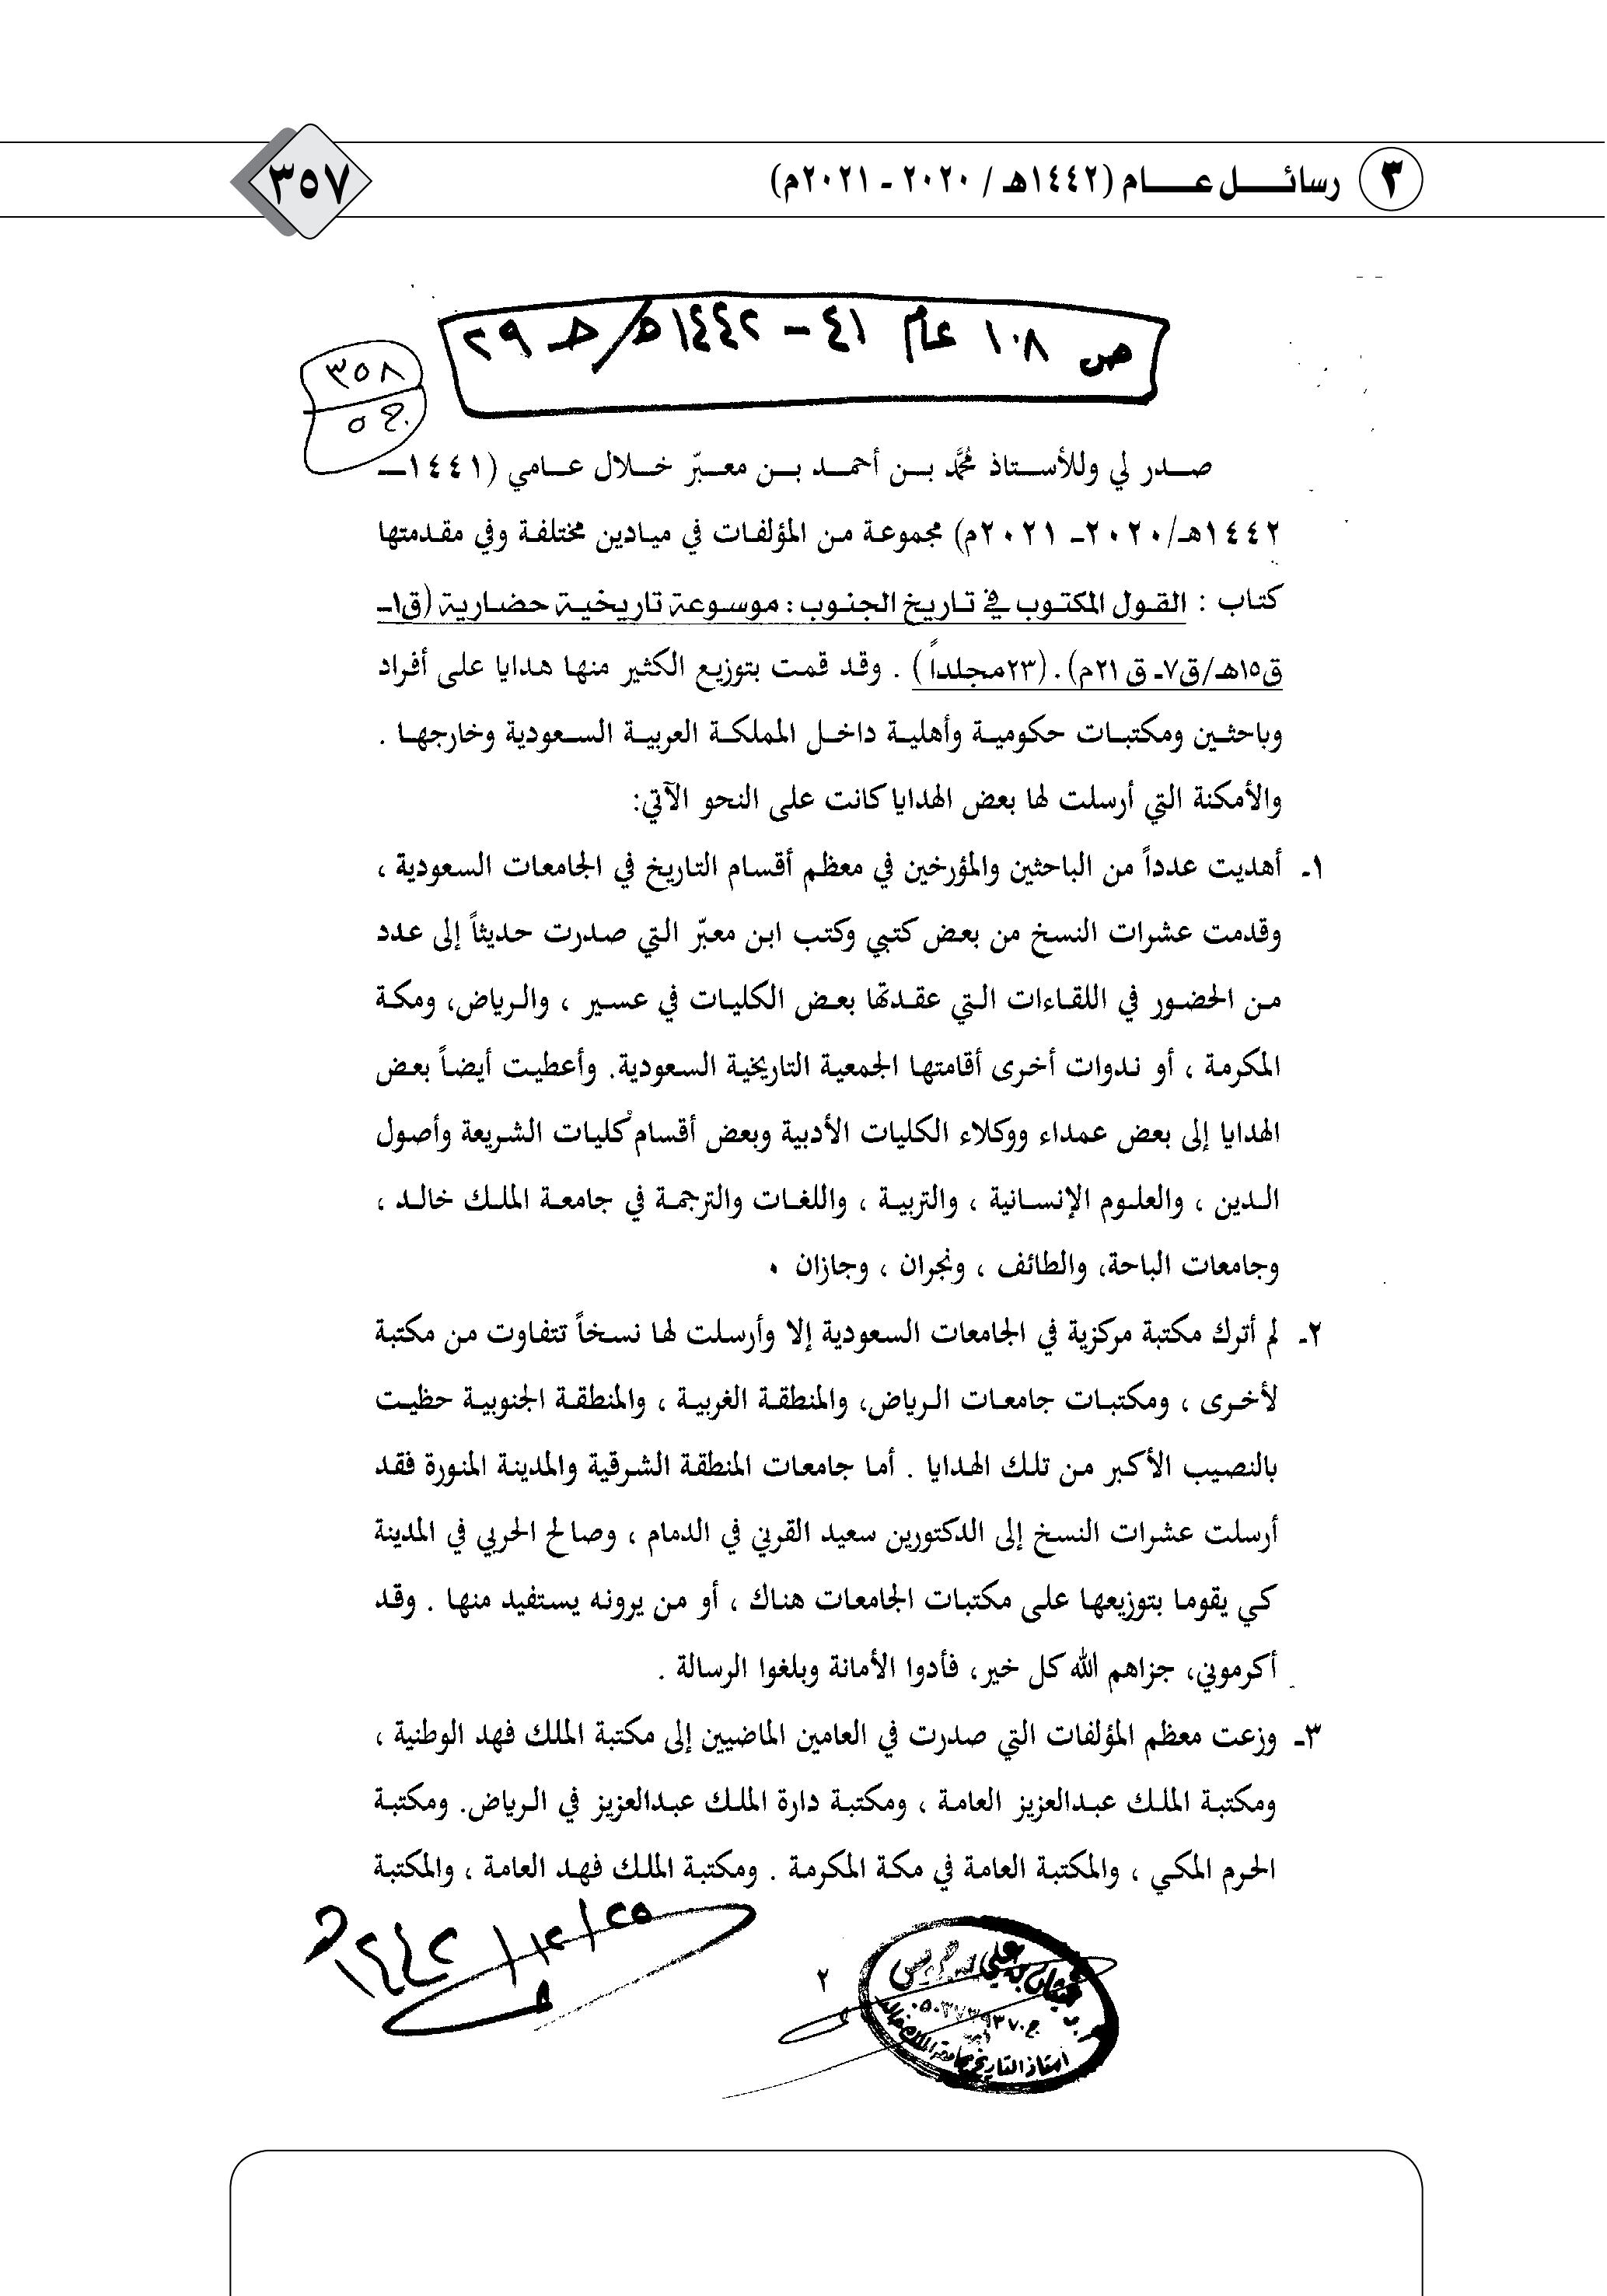 ٣ رسائل عام (١٤٤٢هـ / ٢٠٢٠ - ٢٠٢١م)
٣٥٧
ص ١٠٨ عام ٤١ - ١٤٤٢هـ / حـ ٢٩
٣٥٨
ج ٥
صدر لي وللأستاذ محمَّد بن أحمد بن معبّر خلال عامي (١٤٤١ـ
١٤٤٢هـ/٢٠٢٠ـ ٢٠٢١م) مجموعة من المؤلفات في ميادين مختلفة وفي مقدمتها
كتاب : القول المكتوب في تاريخ الجنوب: موسوعة تاريخية حضارية (ق١ـ
ق١٥هـ/ق٧ـ ق٢١م).(٢٣مجلداً) . وقد قمت بتوزيع الكثير منها هدايا على أفراد
وباحثين ومكتبات حكومية وأهلية داخل المملكة العربية السعودية وخارجها .
والأمكنة التي أرسلت لها بعض الهدايا كانت على النحو الآتي:
١ـ أهديت عدداً من الباحثين والمؤرخين في معظم أقسام التاريخ في الجامعات السعودية ،
وقدمت عشرات النسخ من بعض كتبي وكتب ابن معبّر التي صدرت حديثاً إلى عدد
من الحضور في اللقاءات التي عقدتها بعض الكليات في عسير ، والرياض، ومكة
المكرمة ، أو ندوات أخرى أقامتها الجمعية التاريخية السعودية. وأعطيت أيضاً بعض
الهدايا إلى بعض عمداء ووكلاء الكليات الأدبية وبعض أقسام كليات الشريعة وأصول
الدين ، والعلوم الإنسانية ، والتربية ، واللغات والترجمة في جامعة الملك خالد ،
وجامعات الباحة، والطائف ، ونجران ، وجازان .
٢ـ لم أترك مكتبة مركزية في الجامعات السعودية إلا وأرسلت لها نسخاً تتفاوت من مكتبة
لأخرى ، ومكتبات جامعات الرياض، والمنطقة الغربية ، والمنطقة الجنوبية حظيت
بالنصيب الأكبر من تلك الهدايا . أما جامعات المنطقة الشرقية والمدينة المنورة فقد
أرسلت عشرات النسخ إلى الدكتورين سعيد القرني في الدمام ، وصالح الحربي في المدينة
كي يقوما بتوزيعها على مكتبات الجامعات هناك ، أو من يرونه يستفيد منها . وقد
أكرموني، جزاهم الله كل خير، فأدوا الأمانة وبلغوا الرسالة .
٣ـ وزعت معظم المؤلفات التي صدرت في العامين الماضيين إلى مكتبة الملك فهد الوطنية ،
ومكتبة الملك عبدالعزيز العامة ، ومكتبة دارة الملك عبدالعزيز في الرياض. ومكتبة
الحرم المكي ، والمكتبة العامة في مكة المكرمة . ومكتبة الملك فهد العامة ، والمكتبة
٢٥/١٢/١٤٤٢هـ
٢
بن علي
أستاذ التاريخ بجامعة الملك خالد